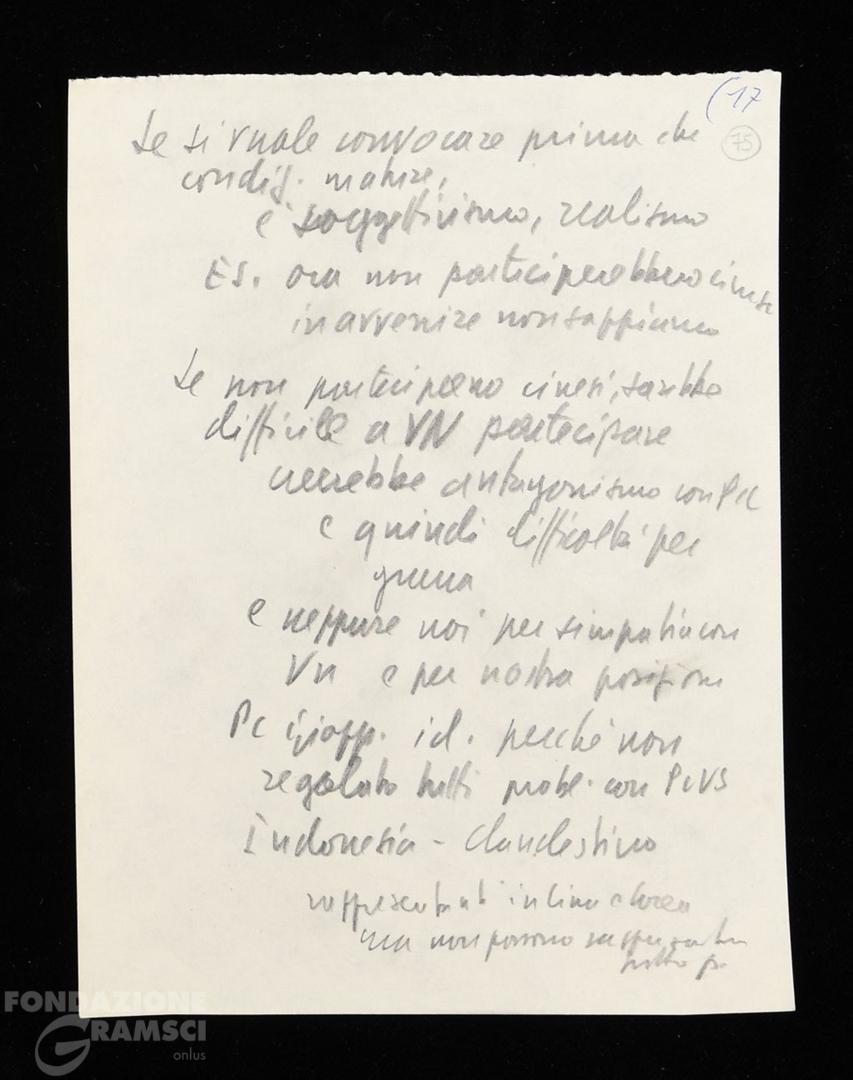 (17
75
Se si vuole convocare prima che
condiz. mature,
è soggettivismo, realismo
ES. ora non parteciperebbero cinesi
in avvenire non sappiamo
Se non partecipano cinesi, sarebbe
difficile a VN partecipare
creerebbe antagonismo con PCC
e quindi difficoltà per
guerra
e neppure noi per simpatia con
VN e per nostra posizione
Pc giapp. id. perché non
regolato tutti probl. con PCUS
Indonesia - clandestino
rappresentanti in Cina e Corea
ma non possono rappresentare
tutto p.
FONDAZIONE
GRAMSCI
onlus